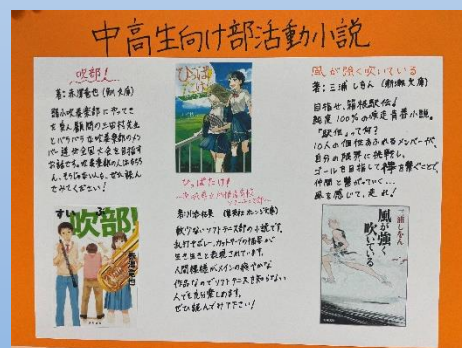 中高生向け部活動小説
吹部!
著:赤澤竜也(角川文庫)
弱小吹奏楽部にやってき
た変人顧問の三田村先生
とバラバラな吹奏楽部のメン
バー達が全国大会を目指す
お話です。吹奏楽部の人はもちろ
ん、そうじゃない人も、ぜひ読ん
でみてください!
すいぶ
吹部!
赤澤竜也
ひらばのけ
数少ないソフトテニス部の小説です。
乱打やボレー、カットサーブの描写が
生き生きと表現されています。
人間模様がメインの爽やかな
作品なのでソフトテニスを知らない
人でも充分楽しめます。
ぜひ読んでみて下さい!
風が強く吹いている
著:三浦しをん(新潮文庫)
目指せ、箱根駅伝!
純度100%の疾走青春小説。
「駅伝」って何?
10人の個性あふれるメンバーが、
自分の限界に挑戦し、
ゴールを目指して襷を繋ぐことで、
仲間と繋がっていく…
風を感じて、走れ!
三浦しをん
風が強く
吹いている